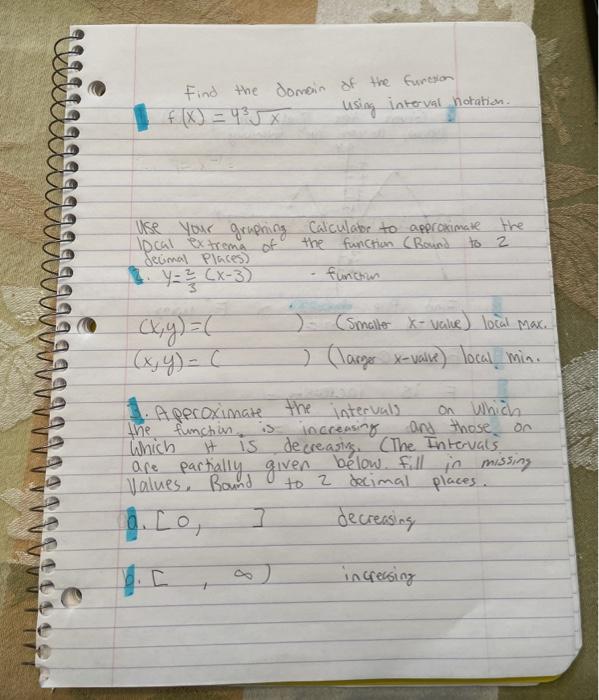 Find the domain of the function
1. f(x) = 4³√x using interval notation.
Use your graphing calculator to approximate the
local extrema of the function (Round to 2
decimal places)
2. y=⅔ (x-3) - function
(x,y)=( ) (smaller x-value) local max.
(x,y) = ( ) (larger x-value) local min.
3. Approximate the intervals on which
the function is increasing and those on
which it is decreasing. (The Intervals
are partially given below. fill in missing
values. Round to 2 decimal places.
a. [0, ] decreasing
b. [ , ∞) increasing